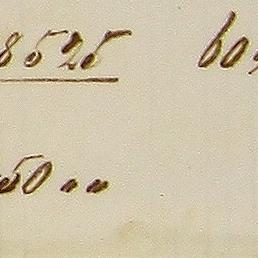 8525 60
50 "